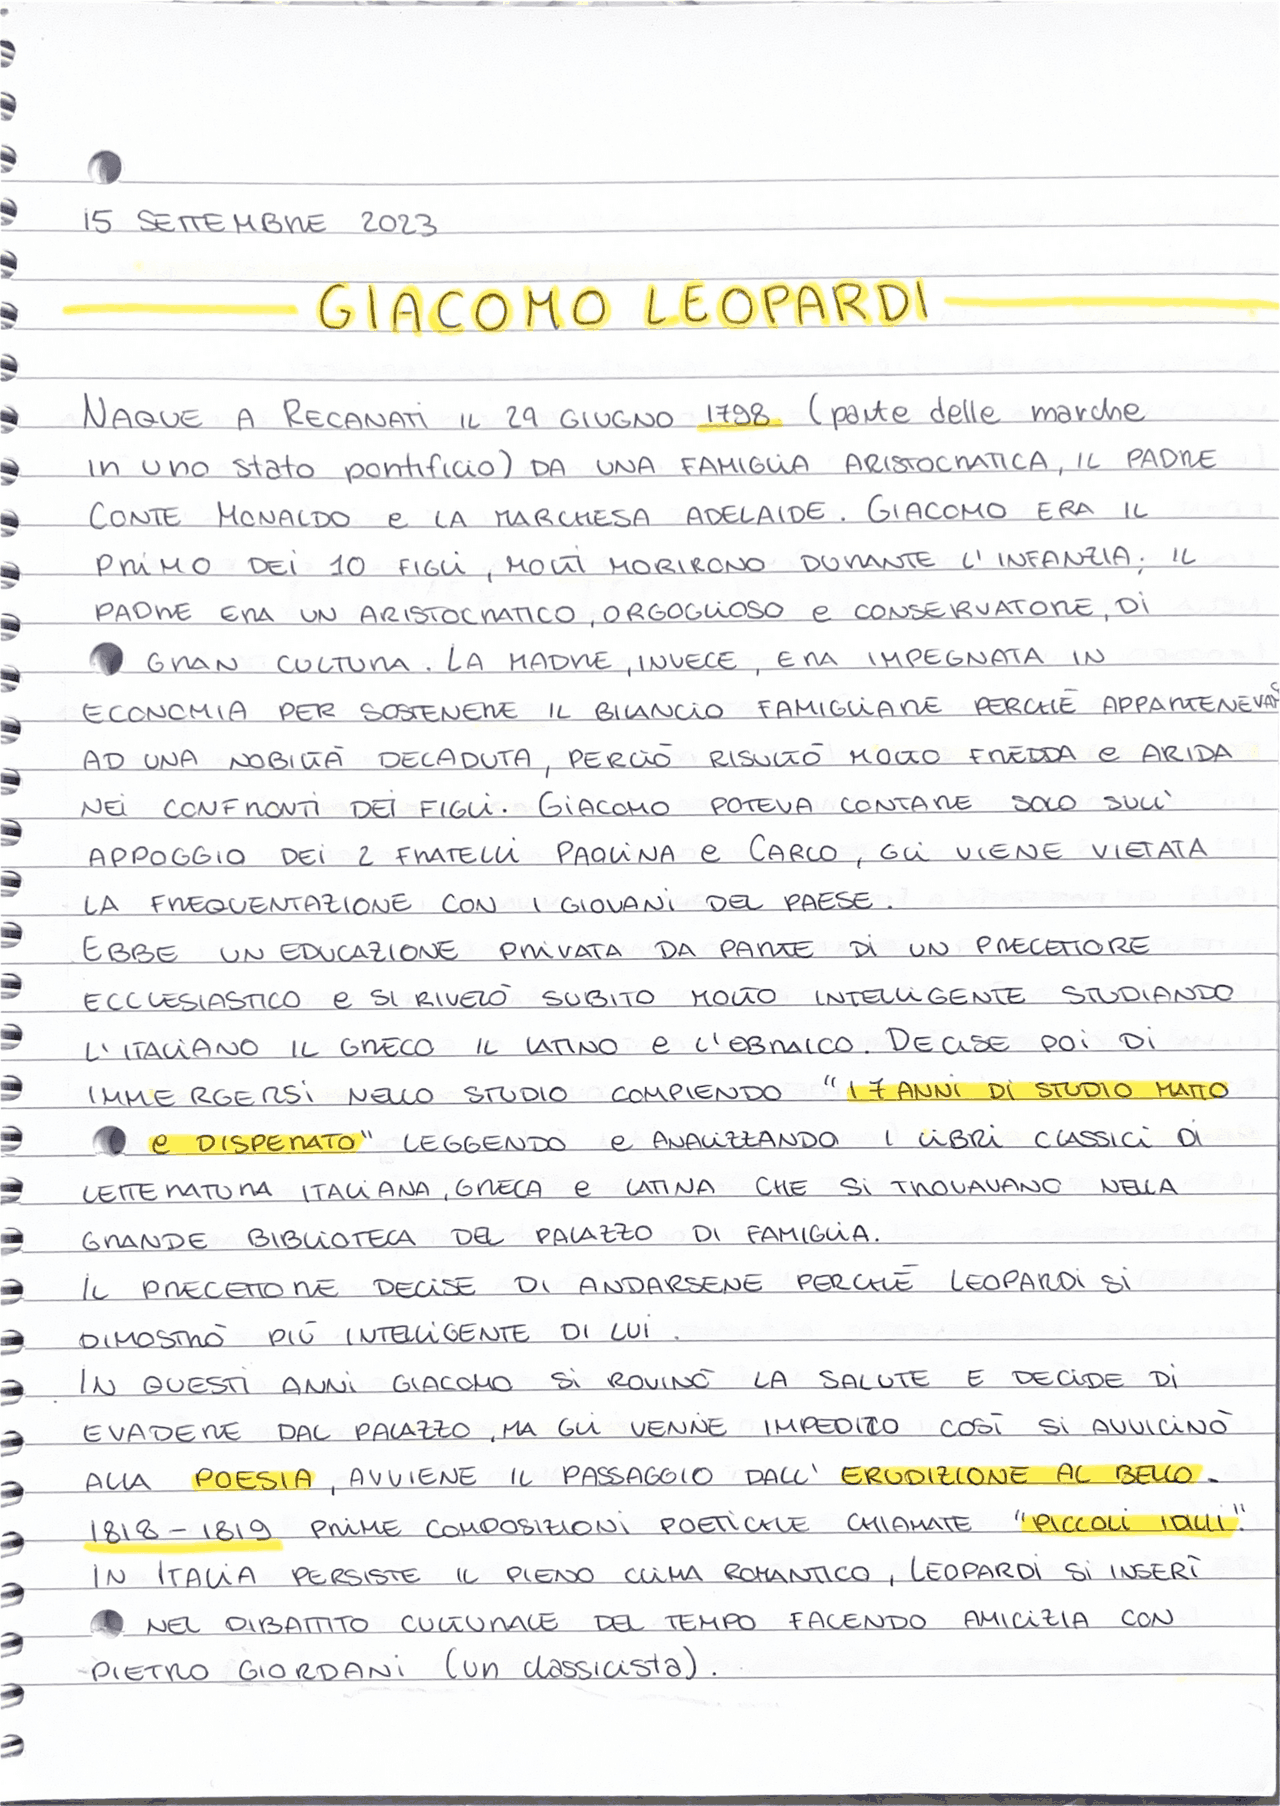 15 SETTEMBRE 2023
GIACOMO LEOPARDI
NAQUE A RECANATI IL 29 GIUGNO 1798 (parte delle marche
in uno stato pontificio) DA UNA FAMIGLIA ARISTOCRATICA, IL PADRE
CONTE MONALDO e LA MARCHESA ADELAIDE. GIACOMO ERA IL
PRIMO DEI 10 FIGLI, MOLTI MORIRONO DURANTE L'INFANZIA. IL
PADRE ERA UN ARISTOCRATICO, ORGOGLIOSO e CONSERVATORE, DI
GRAN CULTURA. LA MADRE, INVECE, ERA IMPEGNATA IN
ECONOMIA PER SOSTENERE IL BILANCIO FAMIGLIARE PERCHÉ APPARTENEVAS
AD UNA NOBILTÀ DECADUTA, PERCIÒ RISULTÒ MOLTO FREDDA e ARIDA
NEI CONFRONTI DEI FIGLI. GIACOMO POTEVA CONTARE SOLO SULL'
APPOGGIO DEI 2 FRATELLI PAOLINA e CARLO, GLI VIENE VIETATA
LA FREQUENTAZIONE CON I GIOVANI DEL PAESE.
EBBE UN EDUCAZIONE PRIVATA DA PARTE DI UN PRECETTORE
ECCLESIASTICO e SI RIVELÒ SUBITO MOLTO INTELLIGENTE STUDIANDO
L'ITALIANO IL GRECO IL LATINO e L'EBRAICO. DECISE POI DI
IMMERGERSI NELLO STUDIO COMPIENDO "I 7 ANNI DI STUDIO MATTO
e DISPERATO" LEGGENDO e ANALIZZANDO I LIBRI CLASSICI DI
LETTERATURA ITALIANA, GRECA e LATINA CHE SI TROVAVANO NELLA
GRANDE BIBLIOTECA DEL PALAZZO DI FAMIGLIA.
IL PRECETTORE DECISE DI ANDARSENE PERCHÉ LEOPARDI SI
DIMOSTRÒ PIÙ INTELLIGENTE DI LUI.
IN QUESTI ANNI GIACOMO SI ROVINÒ LA SALUTE E DECIDE DI
EVADERE DAL PALAZZO, MA GLI VENNE IMPEDITO COSÌ SI AVVICINÒ
ALLA POESIA, AVVIENE IL PASSAGGIO DALL' ERUDIZIONE AL BELLO.
1818-1819 PRIME COMPOSIZIONI POETICHE CHIAMATE "PICCOLI IDILLI".
IN ITALIA PERSISTE IL PIENO CLIMA ROMANTICO, LEOPARDI SI INSERÌ
NEL DIBATTITO CULTURALE DEL TEMPO FACENDO AMICIZIA CON
PIETRO GIORDANI (un classicista).